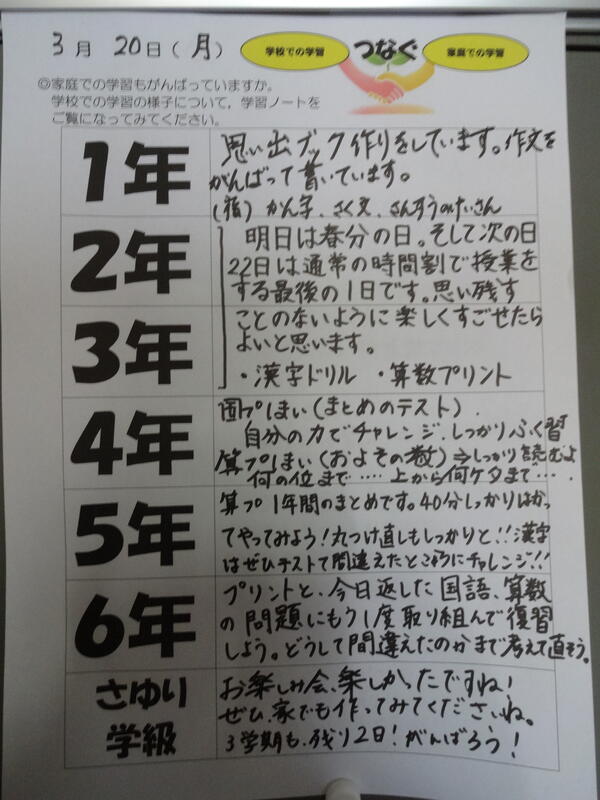 3月 20日(月)
学校での学習 つなぐ 家庭での学習
◎家庭での学習もがんばっていますか。
学校での学習の様子について,学習ノートを
ご覧になってみてください。
1年
思い出ブック作りをしています。作文を
がんばって書いています。
(宿) かん字、さく文、さんすうのたいさん
2年
3年
明日は春分の日。そして次の日
22日は通常の時間割で授業を
する最後の1日です。思い残す
ことのないように楽しくすごせたら
よいと思います。
・漢字ドリル ・算数プリント
4年
国プ1まい(まとめのテスト).
自分の力でチャレンジ.しっかりふく習
算プ1まい(およその数)⇒しっかり を読むよ
何の位まで‥‥上から何ケタまで‥‥.
5年
算プ 1年間のまとめです。40分しっかりはかっ
てやってみよう!丸つけ直しもしっかりと!!漢字
はぜひテストで間違えたところうにチャレンジ!!
6年
プリントと、今日返した国語、算数
の問題にもう1度取り組んで復習
しよう。どうして間違えたのかまで考えて直そう。
さゆり
学級
お楽しみ会、楽しかったですね!
ぜひ、家でも作ってみてくださいね。
3学期も、残り2日!がんばろう!